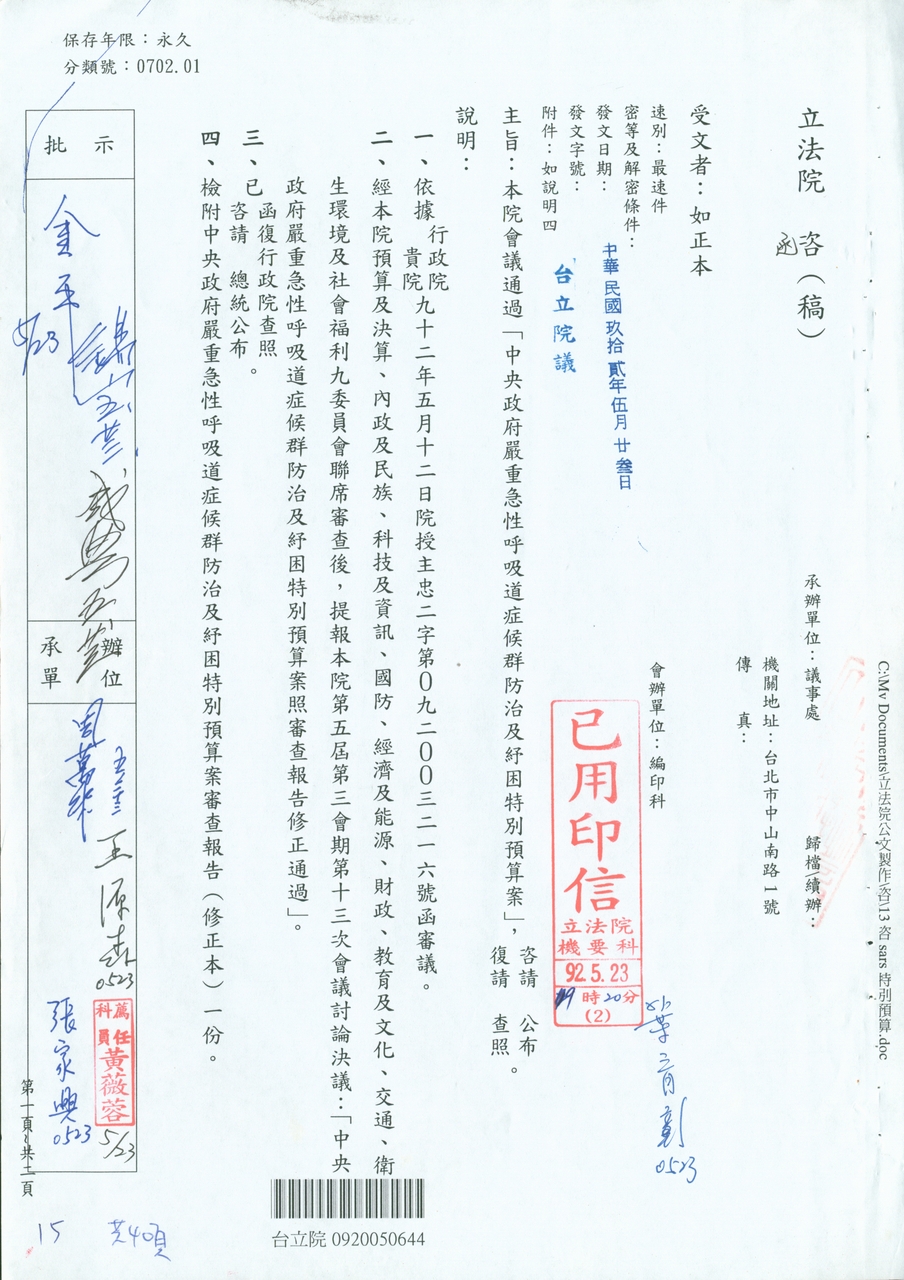 保存年限：永久
分類號：0702.01
C:\My Documents\立法院公文製作\咨\13 咨 sars 特別預算.doc
立法院 咨（稿）
函
承辦單位：議事處
歸檔\續辦：
機關地址：台北市中山南路1號
傳 真：
受文者：如正本
會辦單位：編印科
速別：最速件
密等及解密條件：
發文日期：
中華民國玖拾貳年伍月廿叁日
發文字號：
台立院議
附件：如說明四
已用印信
立法院
機要科
92.5.23
19時20分
(2)
0523
主旨：本院會議通過「中央政府嚴重急性呼吸道症候群防治及紓困特別預算案」，
咨請 公布
復請 查照
。
說明：
一、依據
行政院
貴院
九十二年五月十二日院授主忠二字第０九二００三二一六號函審議。
二、經本院預算及決算、內政及民族、科技及資訊、國防、經濟及能源、財政、教育及文化、交通、衛
生環境及社會福利九委員會聯席審查後，提報本院第五屆第三會期第十三次會議討論決議：「中央
政府嚴重急性呼吸道症候群防治及紓困特別預算案照審查報告修正通過」。
三、已
函復行政院查照
咨請 總統公布
。
四、檢附中央政府嚴重急性呼吸道症候群防治及紓困特別預算案審查報告（修正本）一份。
批 示
金平
5/23
承辦
單位
周萬來
王源森
0523
張家興
0523
薦任
科員
黃薇蓉
5/23
第一頁共二頁
台立院 0920050644
15
共40頁